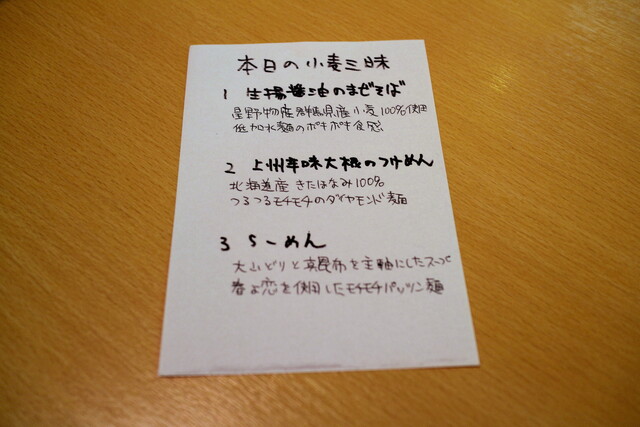 本日の小麦三昧
1 生揚醤油のまぜそば
星野物産群馬県産小麦100%使用
低加水麺のポキポキ食感
2 上州辛味大根のつけめん
北海道産きたほなみ100%
つるつるモチモチのダイヤモンド麺
3 らーめん
大山どりと真昆布を主軸にしたスープ
春よ恋を使用したモチモチパッツン麺